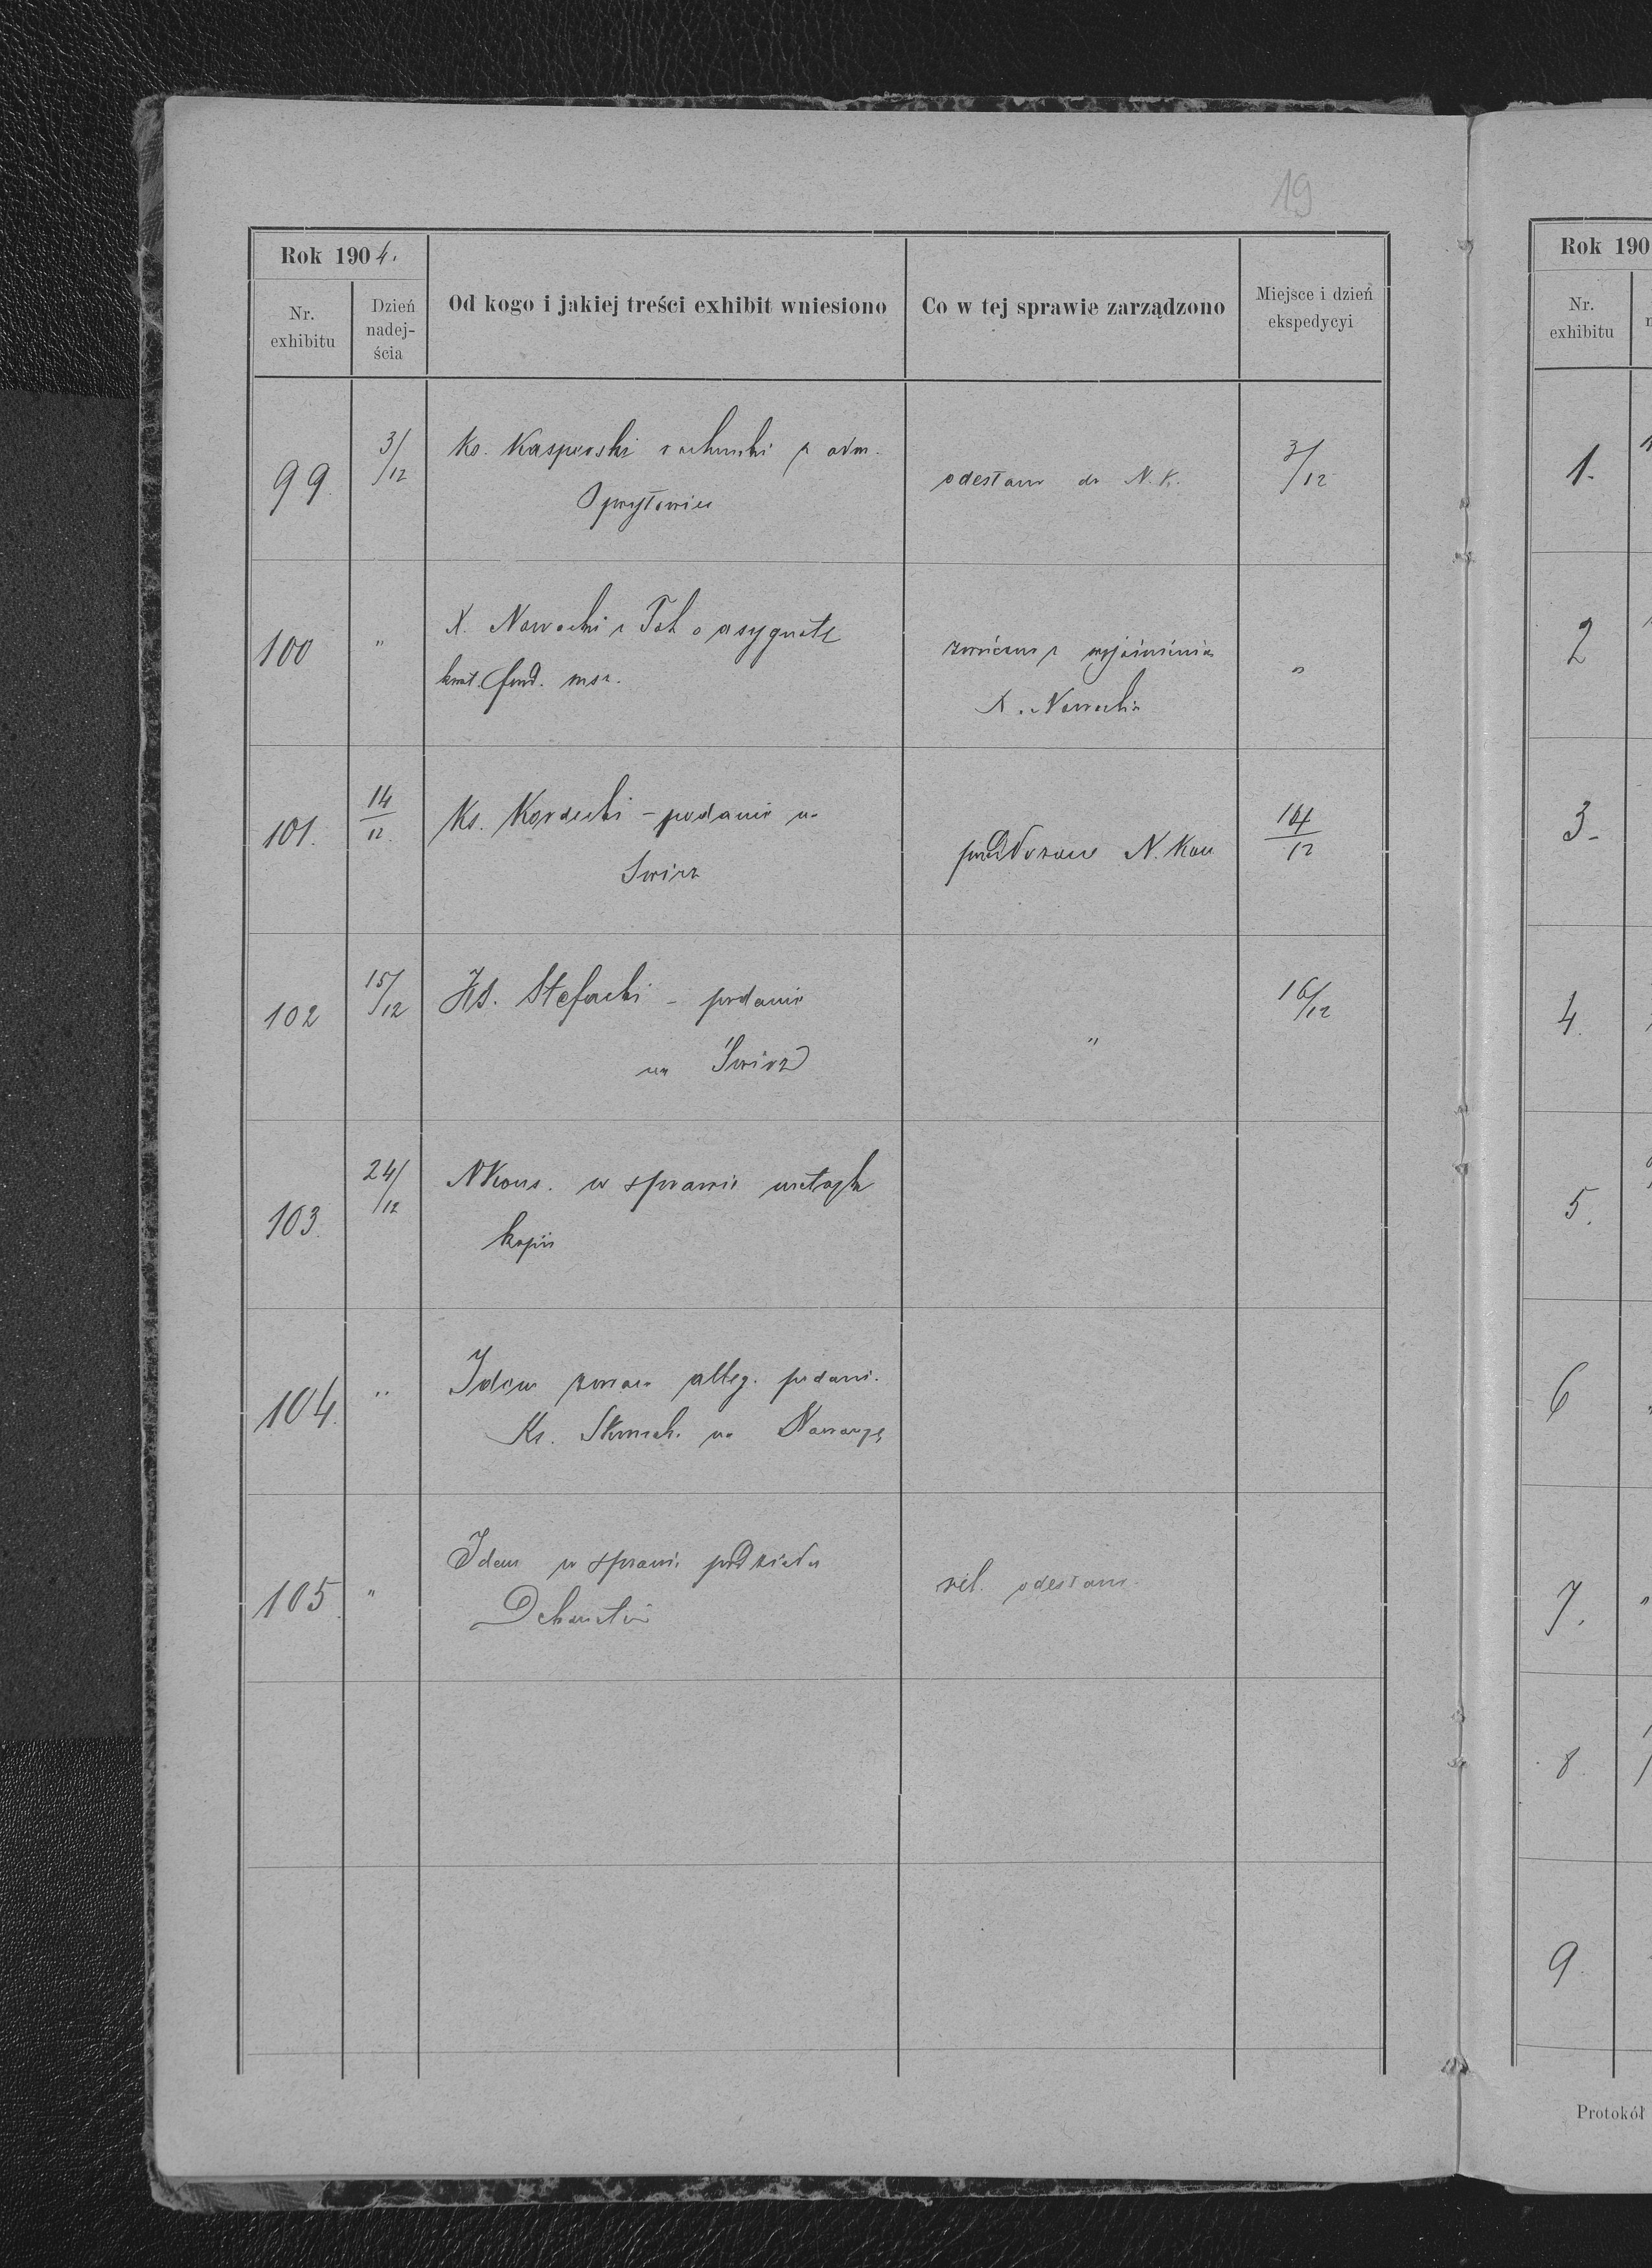 19
Rok 1904.
Nr. exhibitu
Dzień nadej-ścia
Od kogo i jakiej treści exhibit wniesiono
Co w tej sprawie zarządzono
Miejsce i dzień ekspedycyi
99. 3/12 Ks. Kasperski rachunki z adm. odesłano do N. K. 3/12
100 " X. Nowacki z Toł. o asygnatę zwrócono z wyjaśnienia "
fund. msz.
X. Nowacki
101. 14/12. Ks. Kordecki - podanie na N. Kon 14/12
Swirz
102 15/12 Ks. Stefacki - podanie " 16/12
na Świrz
103. 24/12 NKons. w sprawie metryk
kopii
104. " Idem zwraca alleg. podani.
Ks. na
105. " Idem w sprawi. podziału rel. odesłano.
Rok 190
Nr.
exhibitu
1.
2
3.
4.
5.
6
7. "
8.
9
Protokół